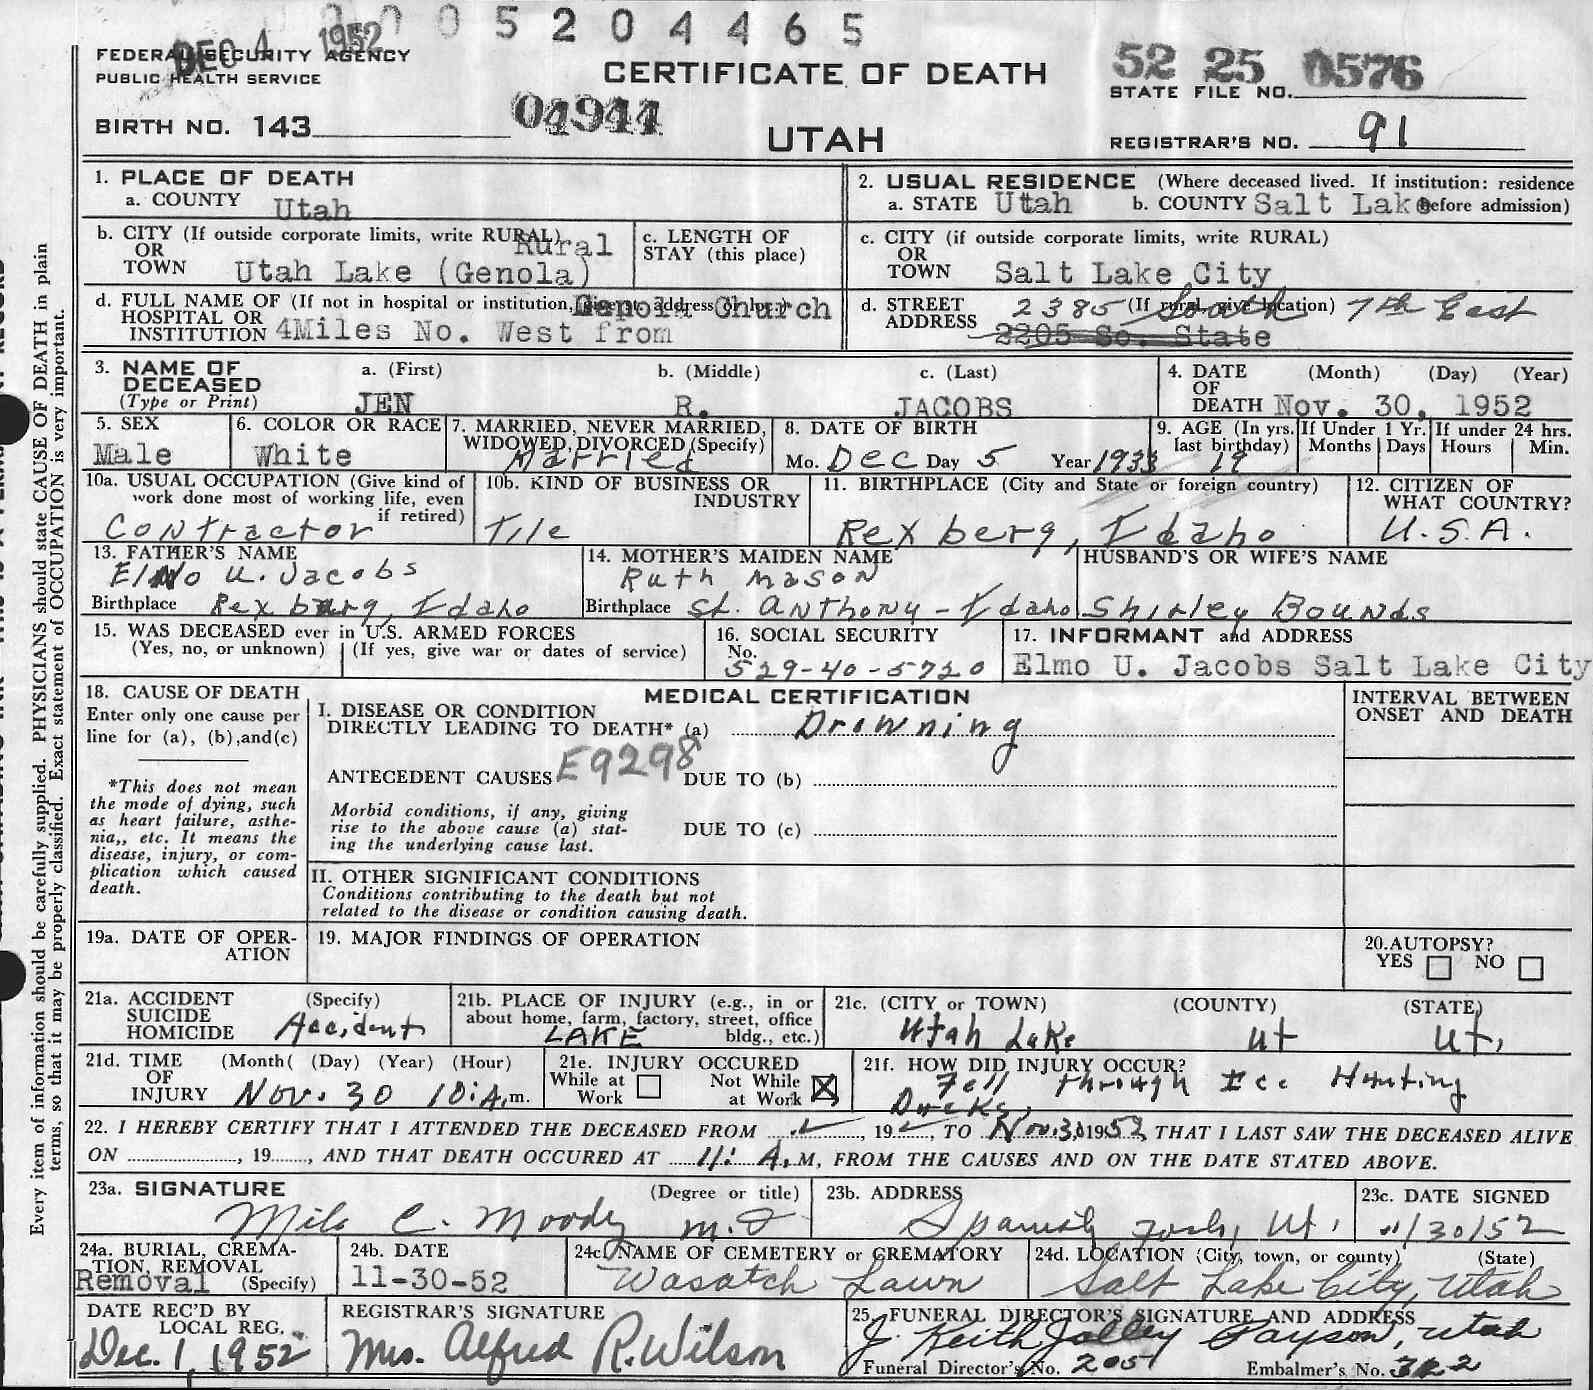 0005204465
DEC 4 1952
FEDERAL SECURITY AGENCY
PUBLIC HEALTH SERVICE
CERTIFICATE OF DEATH
52 25 0576
STATE FILE NO.
BIRTH NO. 143
04944
UTAH
REGISTRAR'S NO. 91
1. PLACE OF DEATH
a. COUNTY Utah
2. USUAL RESIDENCE (Where deceased lived. If institution: residence before admission)
a. STATE Utah b. COUNTY Salt Lake
b. CITY (If outside corporate limits, write RURAL) Rural
OR
TOWN Utah Lake (Genola)
c. LENGTH OF
STAY (this place)
c. CITY (if outside corporate limits, write RURAL)
OR
TOWN Salt Lake City
d. FULL NAME OF (If not in hospital or institution, give st. address or loc.) Genola Church
HOSPITAL OR
INSTITUTION 4Miles No. West from
d. STREET (If rural, give location)
ADDRESS 2385 South 7th East
2205 So. State
3. NAME OF
DECEASED
(Type or Print)
a. (First) JEN
b. (Middle) R.
c. (Last) JACOBS
4. DATE (Month) (Day) (Year)
OF
DEATH Nov. 30, 1952
5. SEX
Male
6. COLOR OR RACE
White
7. MARRIED, NEVER MARRIED,
WIDOWED, DIVORCED (Specify)
Married
8. DATE OF BIRTH
Mo. Dec Day 5 Year 1933
9. AGE (In yrs. last birthday) 19
If Under 1 Yr. Months Days
If under 24 hrs. Hours Min.
10a. USUAL OCCUPATION (Give kind of
work done most of working life, even
if retired)
Contractor
10b. KIND OF BUSINESS OR
INDUSTRY
Tile
11. BIRTHPLACE (City and State or foreign country)
Rexberg, Idaho
12. CITIZEN OF
WHAT COUNTRY?
U.S.A.
13. FATHER'S NAME
Elmo U. Jacobs
Birthplace Rexburg, Idaho
14. MOTHER'S MAIDEN NAME
Ruth Mason
Birthplace St. Anthony - Idaho
HUSBAND'S OR WIFE'S NAME
Shirley Bounds
15. WAS DECEASED ever in U.S. ARMED FORCES
(Yes, no, or unknown) (If yes, give war or dates of service)
16. SOCIAL SECURITY
No.
529-40-5720
17. INFORMANT and ADDRESS
Elmo U. Jacobs Salt Lake City
18. CAUSE OF DEATH
Enter only one cause per
line for (a), (b), and (c)
*This does not mean
the mode of dying, such
as heart failure, asthe-
nia,, etc. It means the
disease, injury, or com-
plication which caused
death.
MEDICAL CERTIFICATION
I. DISEASE OR CONDITION
DIRECTLY LEADING TO DEATH* (a) Drowning
ANTECEDENT CAUSES E9298 DUE TO (b)
Morbid conditions, if any, giving
rise to the above cause (a) stat-
ing the underlying cause last.
DUE TO (c)
II. OTHER SIGNIFICANT CONDITIONS
Conditions contributing to the death but not
related to the disease or condition causing death.
INTERVAL BETWEEN
ONSET AND DEATH
19a. DATE OF OPER-
ATION
19. MAJOR FINDINGS OF OPERATION
20. AUTOPSY?
YES NO
21a. ACCIDENT (Specify)
SUICIDE
HOMICIDE Accident
21b. PLACE OF INJURY (e.g., in or
about home, farm, factory, street, office
bldg., etc.)
LAKE
21c. (CITY or TOWN) (COUNTY) (STATE)
Utah Lake Ut Ut.
21d. TIME (Month( (Day) (Year) (Hour)
OF
INJURY Nov. 30 10:A.m.
21e. INJURY OCCURED
While at
Work
Not While
at Work
21f. HOW DID INJURY OCCUR?
Fell through Ice Hunting
Ducks.
22. I HEREBY CERTIFY THAT I ATTENDED THE DECEASED FROM , 19 , TO Nov. 30, 1952, THAT I LAST SAW THE DECEASED ALIVE
ON , 19 , AND THAT DEATH OCCURED AT 11: A.M, FROM THE CAUSES AND ON THE DATE STATED ABOVE.
23a. SIGNATURE (Degree or title)
Milo C. Moody M.D
23b. ADDRESS
Spanish Fork, Ut.
23c. DATE SIGNED
11/30/52
24a. BURIAL, CREMA-
TION, REMOVAL
Removal (Specify)
24b. DATE
11-30-52
24c. NAME OF CEMETERY or CREMATORY
Wasatch Lawn
24d. LOCATION (City, town, or county) (State)
Salt Lake City, Utah
DATE REC'D BY
LOCAL REG.
Dec. 1, 1952
REGISTRAR'S SIGNATURE
Mrs. Alfred R. Wilson
25. FUNERAL DIRECTOR'S SIGNATURE AND ADDRESS
J. Keith Jolley Payson, Utah
Funeral Director's No. 205 Embalmer's No. 322
Every item of information should be carefully supplied. PHYSICIANS should state CAUSE OF DEATH in plain
terms, so that it may be properly classified. Exact statement of OCCUPATION is very important.